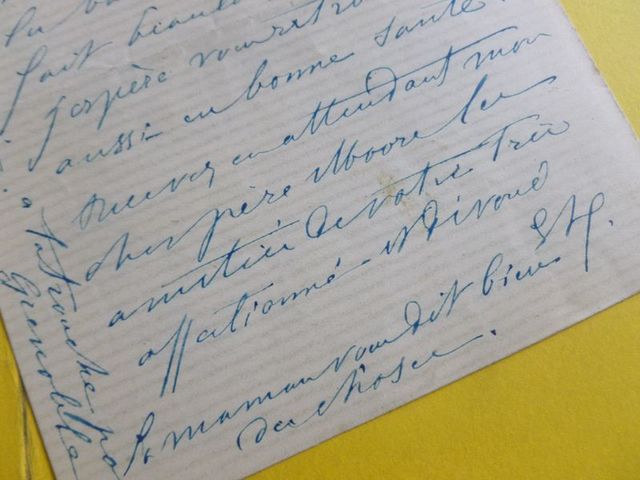 fait beau
j'espère vous retro
aussi en bonne santé
recevez en attendant mon
cher père Moore les
amitiés de votre très
affectionné et dévoué
StH.
La maman vous dit bien
des choses.
à la Tronche
Grenoble